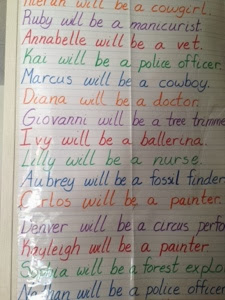 Kieran will be a cowgirl.
Ruby will be a manicurist.
Annabelle will be a vet.
Kai will be a police officer.
Marcus will be a cowboy.
Diana will be a doctor.
Giovanni will be a tree trimme
Ivy will be a ballerina.
Lilly will be a nurse.
Aubrey will be a fossil finder
Carlos will be a painter.
Denver will be a circus perfo
Kayleigh will be a painter.
Sophia will be a forest explo
Nathan will be a police officer